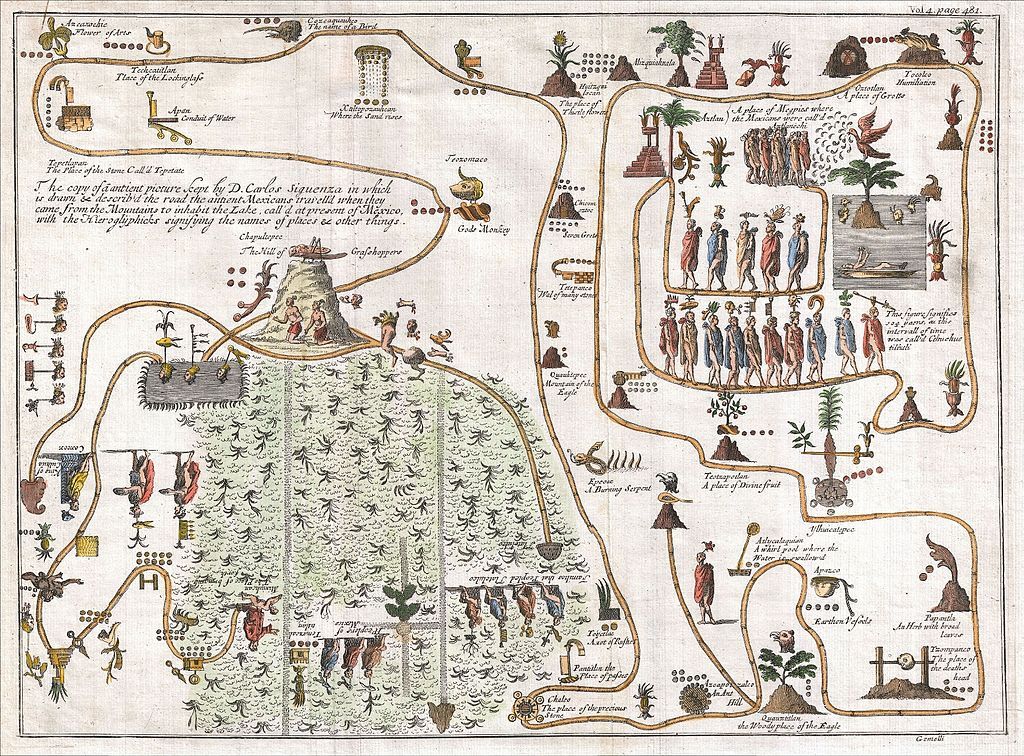 Vol 4. page 481.
Azcaxochic
Flower of Arts
Cozcaquauhco
The name of a Bird
Techcatitlan
Place of the Lockinglass
Apan
Conduit of Water
Xaltepozauhcan
Where the Sand rises
Tepetlapan
The Place of the Stone Call'd Tepetate
The copy of a antient picture kept by D. Carlos Siguenza in which
is drawn & describ'd the road the antient Mexicans travell'd when they
came from the Mountains to inhabit the Lake, call'd at present of Mexico,
with the Hieroglyphicks signifying the names of places & other things.
Teozomaco
Gods Monkey
Chapultepec
The Hill of Grashoppers
Huitzqui
locan
The place of
Thistle flowers
Mizquiahuala
Oztotlan
A place of Grotto
Tocolco
Humiliation
Aztlan
A place of Megpies where
the Mexicans were call'd
Chicom
oztoc
Seven Grots
Tetepanco
Wal of many stone
Quauhtepec
Mountain of the
Eagle
This figure signifies
104 years, as the
intervall of time
was call'd
Epcoac
A Burning Serpent
Teotzapotlan
A place of Divine fruit
Ylhuicatepec
Atlicalaquian
A whirl pool where the
Water is swallow'd
Apazco
Earthen Vessels
Papantla
An Herb with broad
leaves
Tzompanco
The place of
the deaths
head
Azcapotzalco
An Ant
Hill
Quauhtitlan
the Woody place of the Eagle
Pantitlan the
Place of passes
Chalco
The place of the precious
Stone
Gemelli